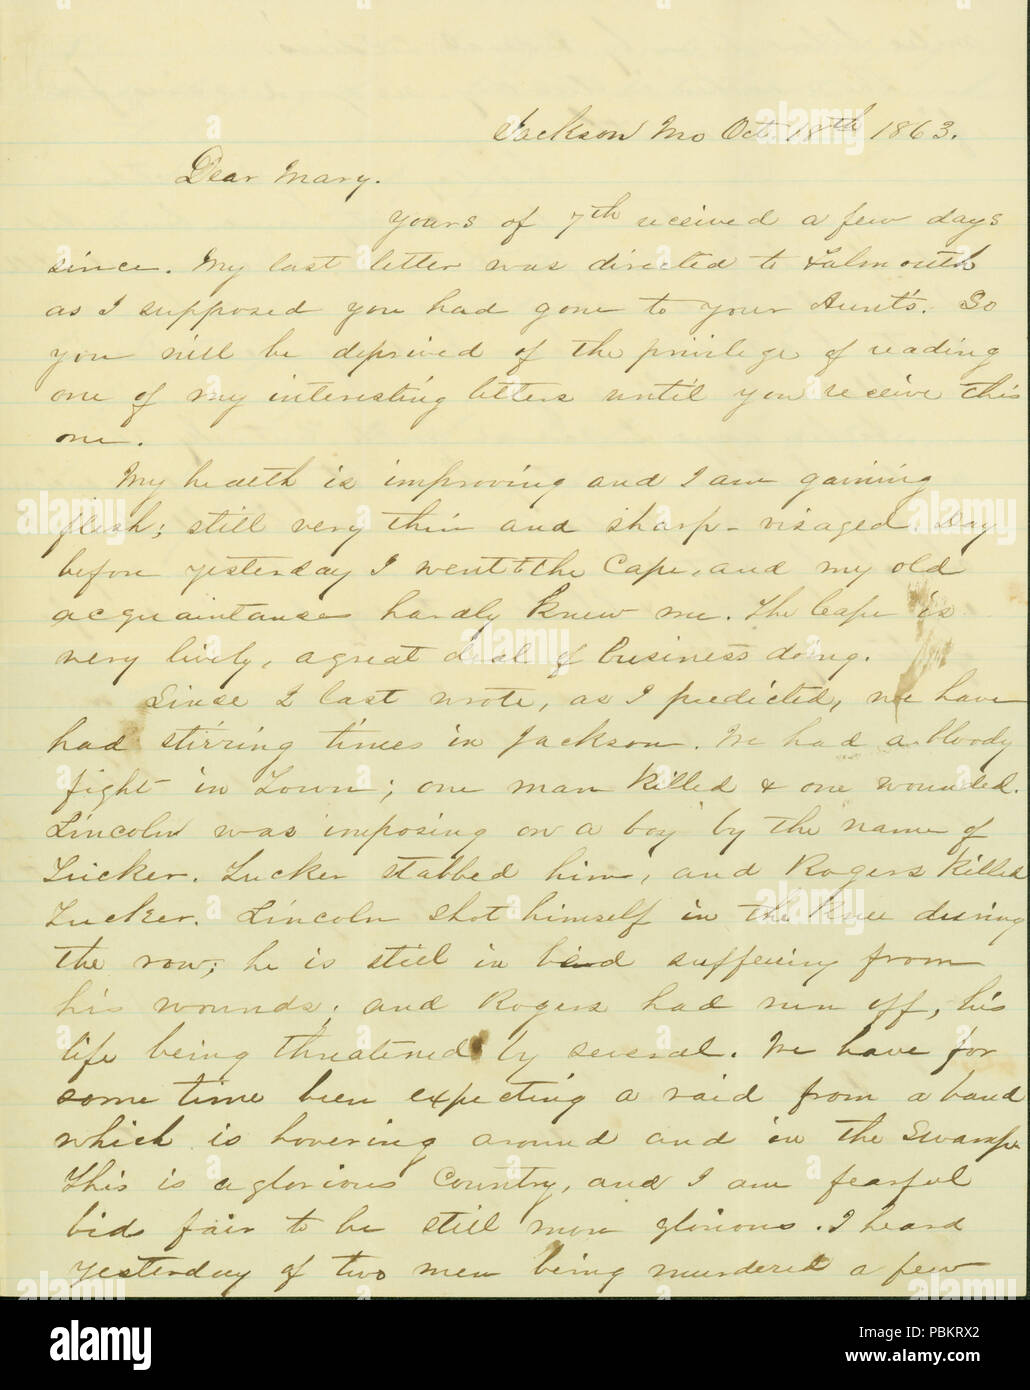 Jackson Mo Oct. 18th 1863.
Dear Mary.
Yours of 7th received a few days
since. My last letter was directed to Falmouth
as I supposed you had gone to your Aunt's. So
you will be deprived of the privilege of reading
one of my interesting letters until you receive this
one.
My health is improving and I am gaining
flesh; still very thin and sharp-visaged. Day
before yesterday I went to the Cape, and my old
acquaintances hardly knew me. The Cape is
very lively, a great deal of business doing.
Since I last wrote, as I predicted, we have
had stirring times in Jackson. We had a bloody
fight in Town; one man killed & one wounded.
Lincoln was imposing on a boy by the name of
Tucker. Tucker stabbed him, and Rogers killed
Tucker. Lincoln shot himself in the knee during
the row; he is still in bed suffering from
his wounds; and Rogers had run off, his
life being threatened by several. We have for
some time been expecting a raid from a band
which is hovering around and in the Swamp.
This is a glorious Country, and I am fearful
bids fair to be still more glorious. I heard
yesterday of two men being murdered a few
alamy
Image ID: PBKRX2
www.alamy.com